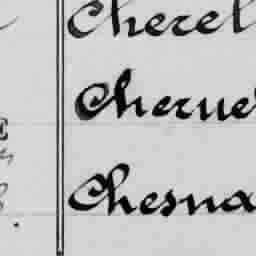 Cherel
Cherue
Chesna